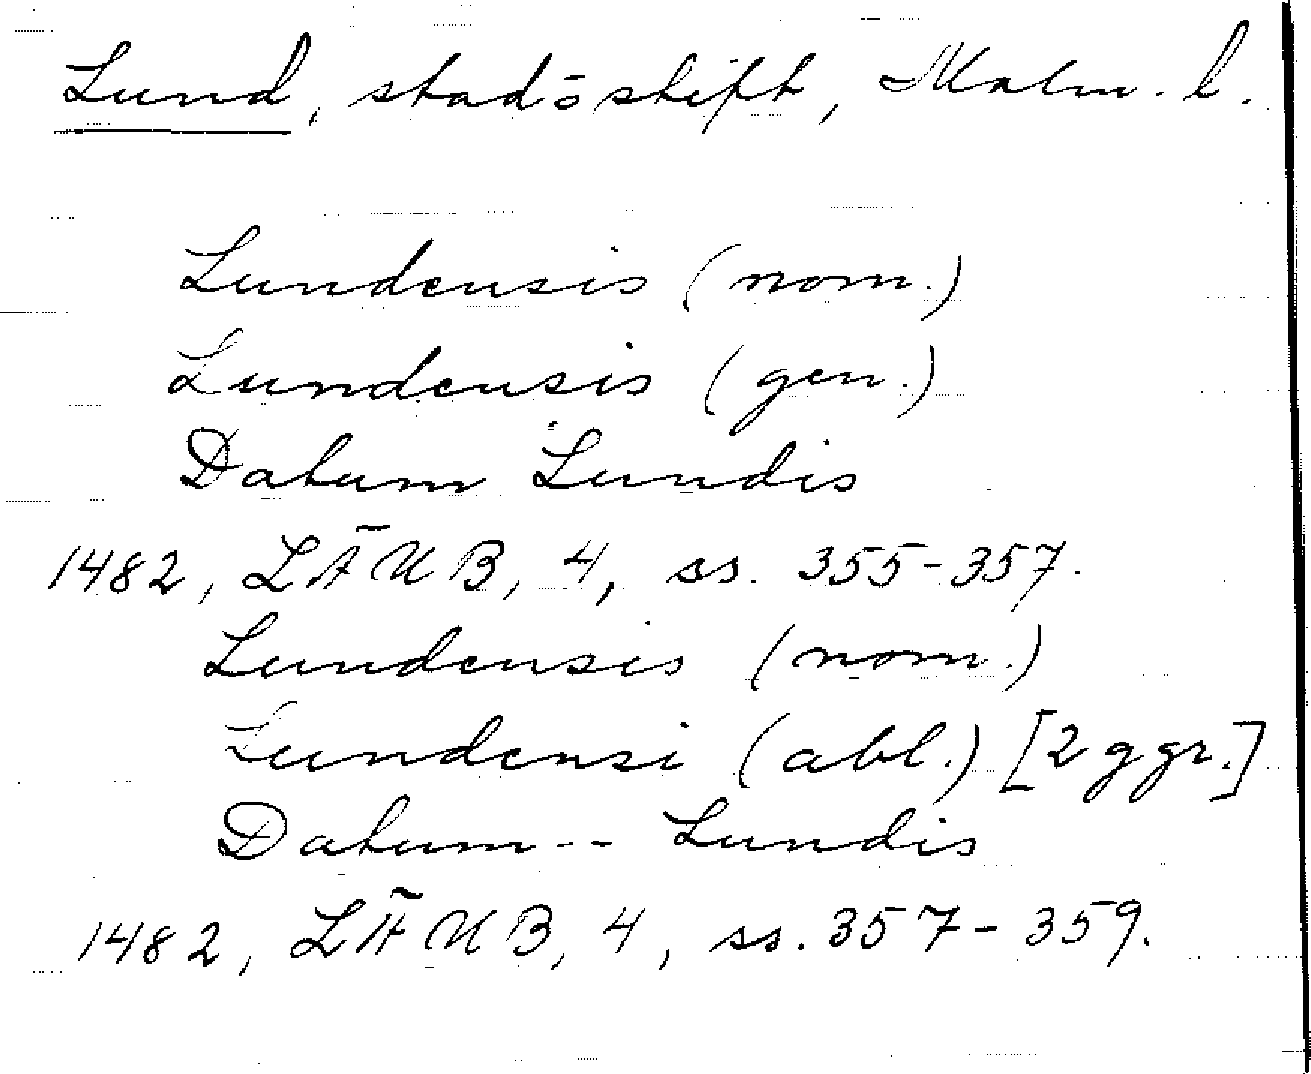 Lund, stad o stift, Malm. l.
Lundensis (nom.)
Lundensis (gen.)
Datum Lundis
1482, LÄUB, 4, ss. 355-357.
Lundensis (nom.)
Lundensi (abl.) [2 ggr.]
Datum -- Lundis
1482, LÄUB, 4, ss. 357-359.